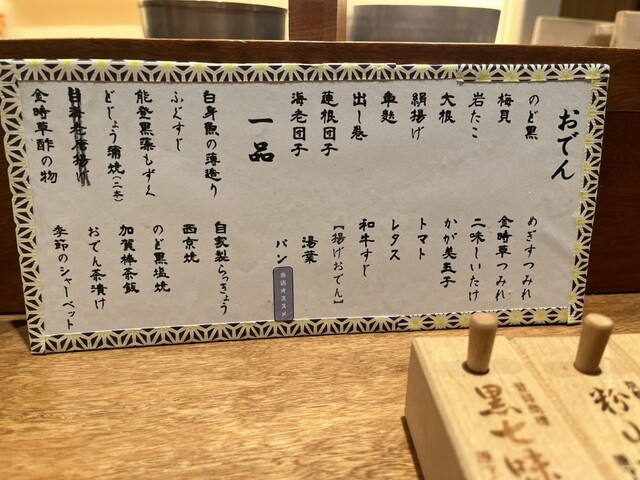 おでん
のど黒
梅貝
岩たこ
大根
絹揚げ
車麩
出し巻
蓮根団子
海老団子
めぎすつみれ
金時草つみれ
二味しいたけ
かが美玉子
トマト
レタス
和牛すじ
【揚げおでん】
湯葉
パン
当店オススメ
一品
白身魚の薄造り
ふぐすじ
能登黒藻もずく
どじょう蒲焼(二本)
白海老唐揚げ
金時草酢の物
自家製らっきょう
西京焼
のど黒塩焼
加賀棒茶飯
おでん茶漬け
季節のシャーベット
黒七味
粉山